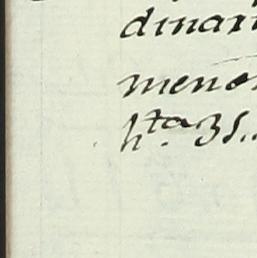 dinari
meno
hta. 35..